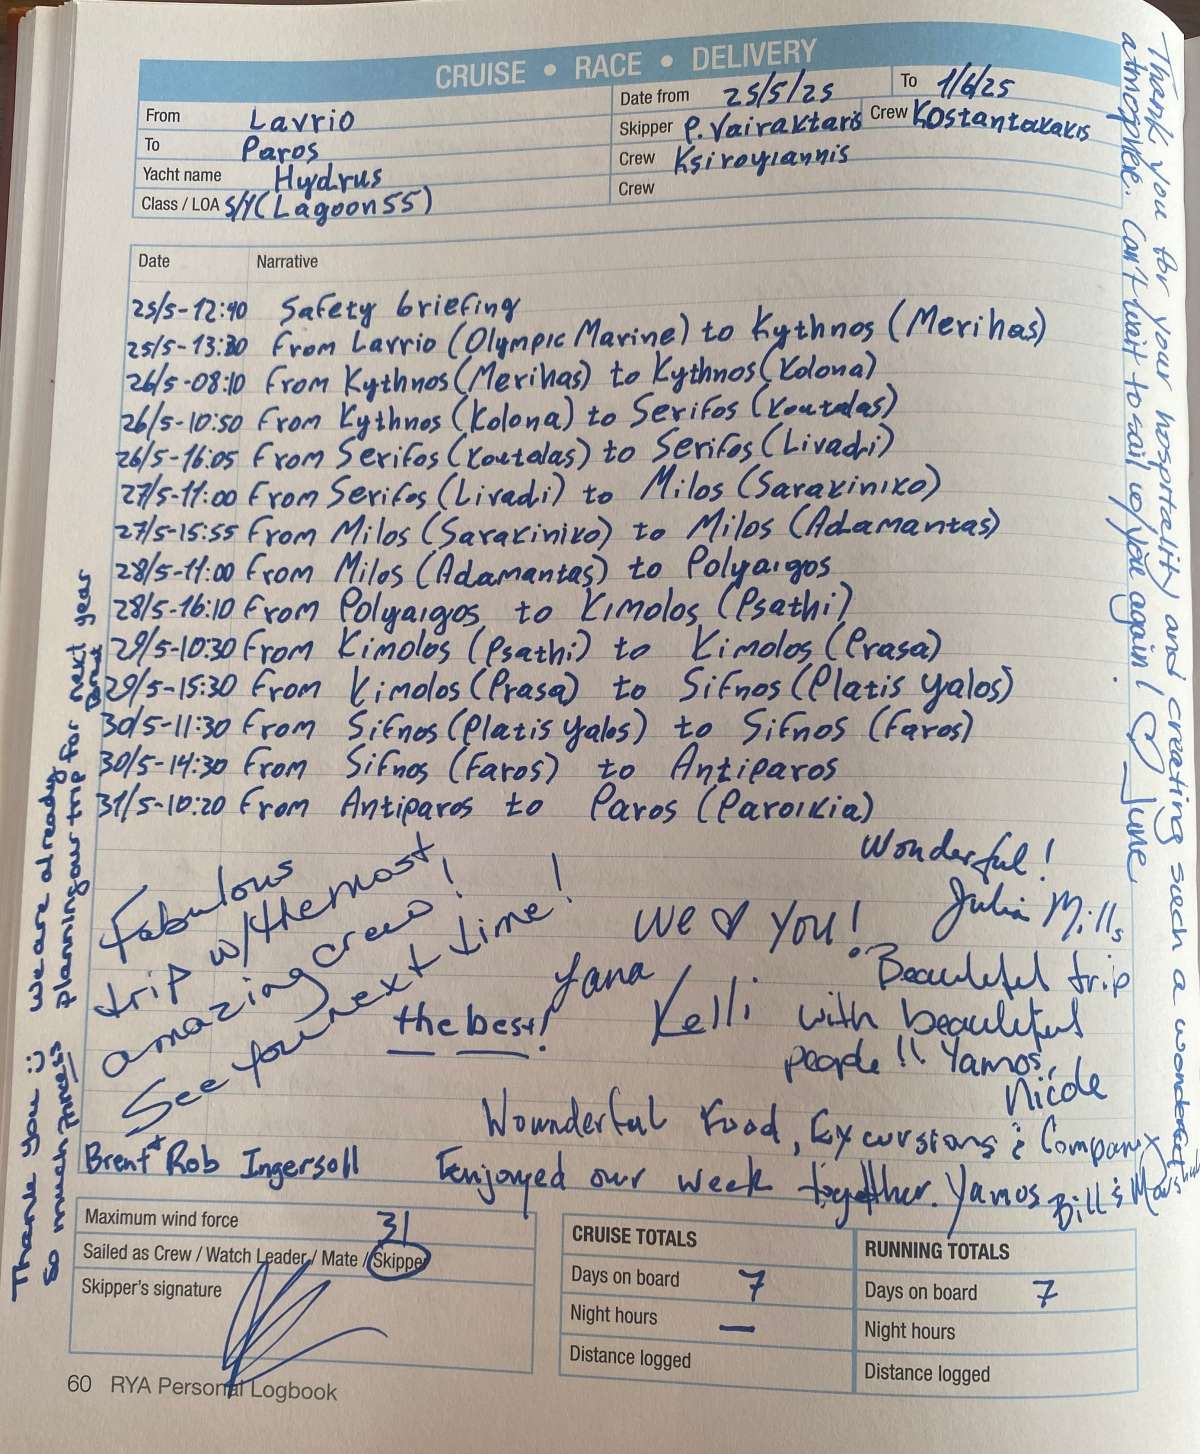 CRUISE • RACE • DELIVERY
From Lavrio
To Paros
Yacht name Hydrus
Class / LOA S/Y (Lagoon 55)
Date from 25/5/25 To 1/6/25
Skipper P. Vairaktaris Crew Kostantakakis
Crew Ksirogiannis
Crew
Date Narrative
25/5-12:40 Safety briefing
25/5-13:30 From Lavrio (Olympic Marine) to Kythnos (Merihas)
26/5-08:10 From Kythnos (Merihas) to Kythnos (Kolona)
26/5-10:50 From Kythnos (Kolona) to Serifos (Koutalas)
26/5-16:05 From Serifos (Koutalas) to Serifos (Livadi)
27/5-11:00 From Serifos (Livadi) to Milos (Sarakiniko)
27/5-15:55 From Milos (Sarakiniko) to Milos (Adamantas)
28/5-11:00 From Milos (Adamantas) to Polyaigos
28/5-16:10 From Polyaigos to Kimolos (Psathi)
29/5-10:30 From Kimolos (Psathi) to Kimolos (Prasa)
29/5-15:30 From Kimolos (Prasa) to Sifnos (Platis yalos)
30/5-11:30 From Sifnos (Platis yalos) to Sifnos (Faros)
30/5-14:30 From Sifnos (Faros) to Antiparos
31/5-10:20 From Antiparos to Paros (Paroikia)
Fabulous
trip w/ the most
amazing crew!
See you next time!
Brent + Rob Ingersoll
Wonderful!
Julia Mills
We ♥ You!
Yana
the best!
Kelli
Beautiful trip
with beautiful
people!! Yamos,
Nicole
Wounderful Food, Excursions & Company
Eenjoyed our week together. Yamos Bill &
Thank you :) We are already
so much planning our trip for next year
Thank you for your hospitality and creating such a wonderful
atmosphere. Can't wait to sail w/you again! ♡ June
Maximum wind force 31
Sailed as Crew / Watch Leader / Mate / Skipper
Skipper's signature
CRUISE TOTALS
Days on board 7
Night hours —
Distance logged
RUNNING TOTALS
Days on board 7
Night hours
Distance logged
60 RYA Personal Logbook